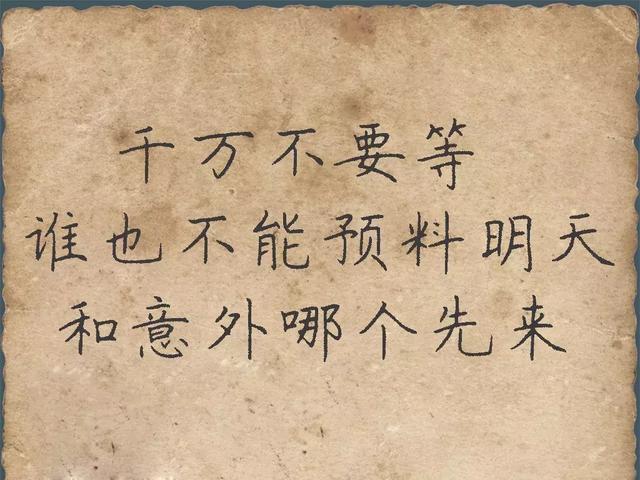 千万不要等
谁也不能预料明天
和意外哪个先来